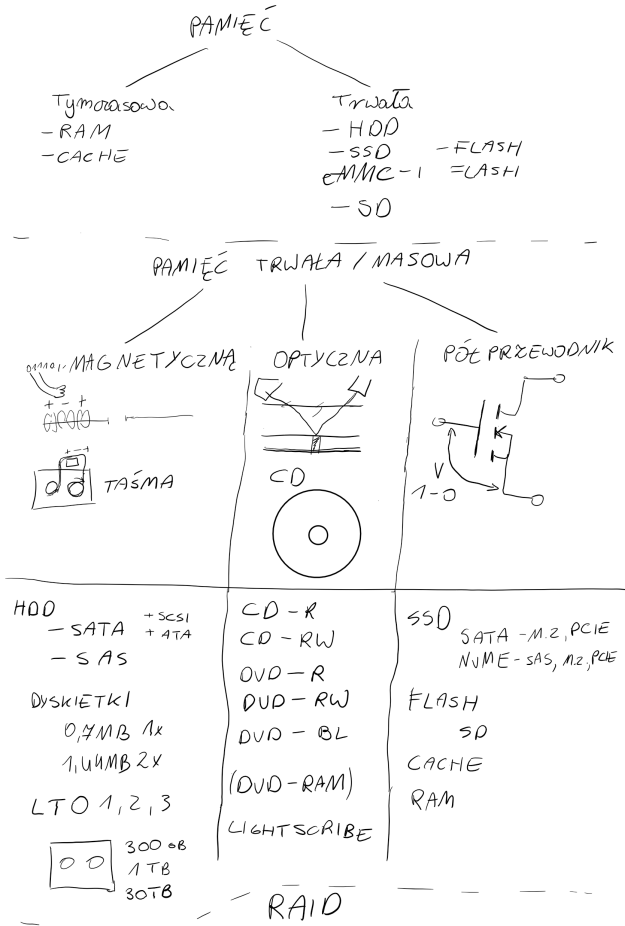 PAMIĘĆ
Tymczasowa
- RAM
- CACHE
Trwała
- HDD
- SSD - FLASH
eMMC - FLASH
- SD
PAMIĘĆ TRWAŁA / MASOWA
MAGNETYCZNĄ
+ - +
+ - +
TAŚMA
OPTYCZNA
CD
PÓŁPRZEWODNIK
V
1-0
HDD
- SATA + SCSI
+ ATA
- SAS
DYSKIETKI
0,7MB 1x
1,44MB 2x
LTO 1, 2, 3
300 GB
1 TB
30TB
CD - R
CD - RW
DVD - R
DVD - RW
DVD - BL
(DVD - RAM)
LIGHTSCRIBE
SSD
SATA - M.2, PCIE
NVME - SAS, M.2, PCIE
FLASH
SD
CACHE
RAM
RAID